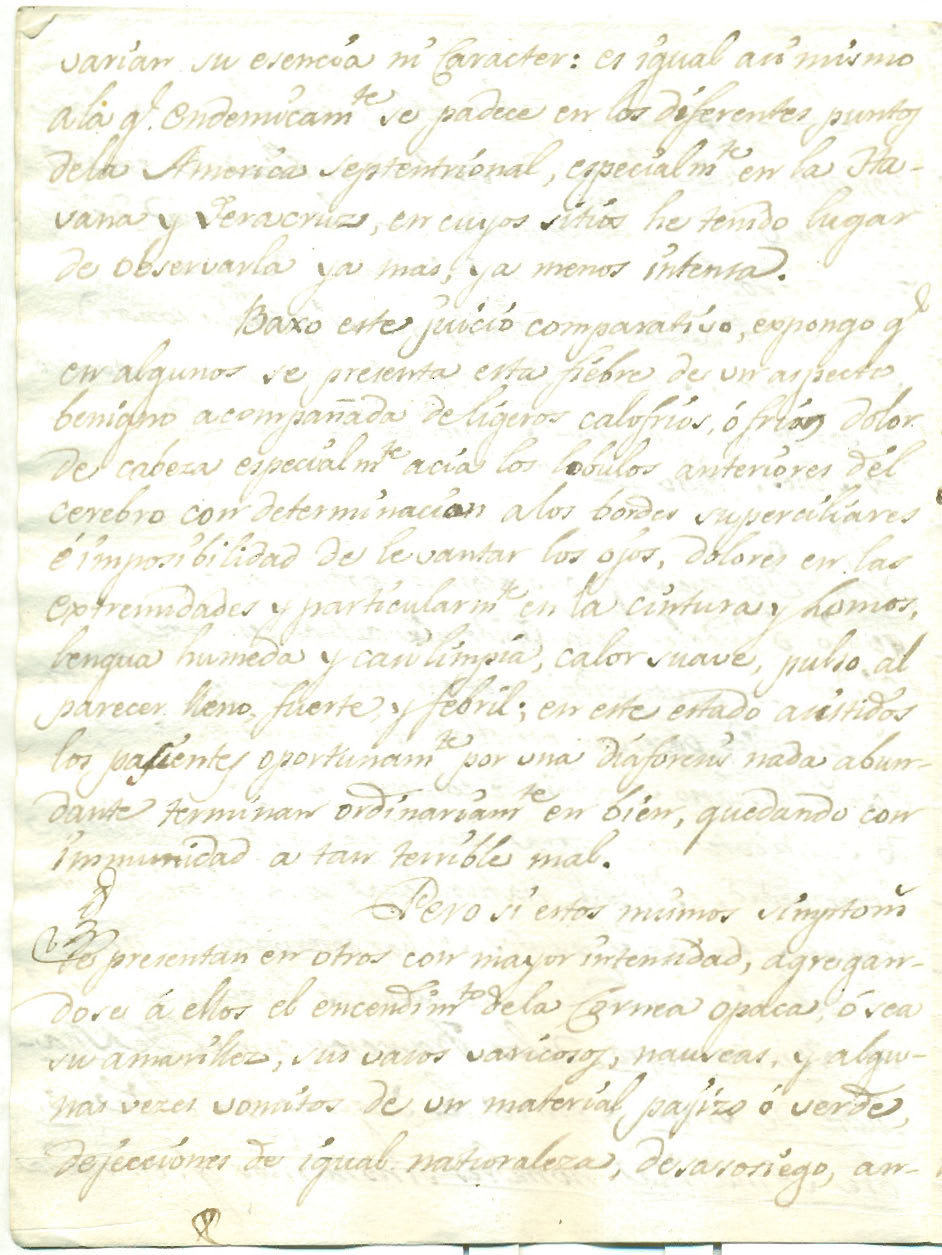 varian su esencia ni Caracter: es igual aun mismo
ala q.e Endemicam.te se padece en los diferentes puntos
dela America septentrional, especialm.te en la Ha-
vana y Veracruz, en cuyos sitios he tenido lugar
de observarla ya mas, ya menos intensa.
Baxo este juicio comparativo, expongo q.e
en algunos se presenta esta fiebre de un aspecto
benigno acompañada de ligeros calofrios, ó frios, dolor
de cabeza especialm.te acia los lobulos anteriores del
cerebro con determinacion alos bordes superciliares
é imposibilidad de levantar los ojos, dolores en las
extremidades y particularm.te en la cintura y homos,
lengua humeda y casi limpia, calor suave, pulso al
parecer lleno, fuerte, y febril; en este estado asistidos
los pacientes oportunam.te por una diaforesis nada abun-
dante terminan ordinariam.te en bien, quedando con
immunidad a tan terrible mal.
Pero si estos mismos simptom.s
se presentan en otros con mayor intensidad, agregan-
dose á ellos el encendim.to dela Cornea opaca, ó sea
su amarillez, sus vasos varicosos, nauseas, y algu-
nas vezes vomitos de un material pajizo ó verde,
dejecciones de igual naturaleza, desasosiego, an-